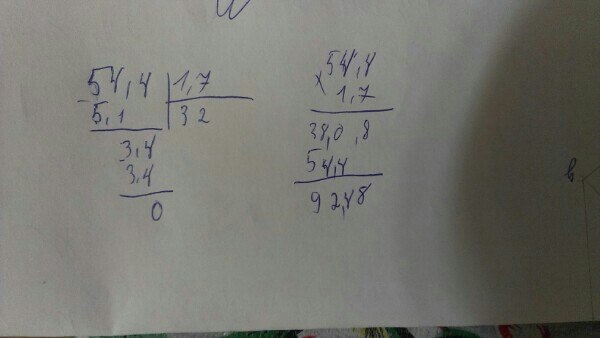 54,4 1,7
- 5,1 32
3,4
3,4
0
54,4
x 1,7
38,0,8
54,4
92,48
b